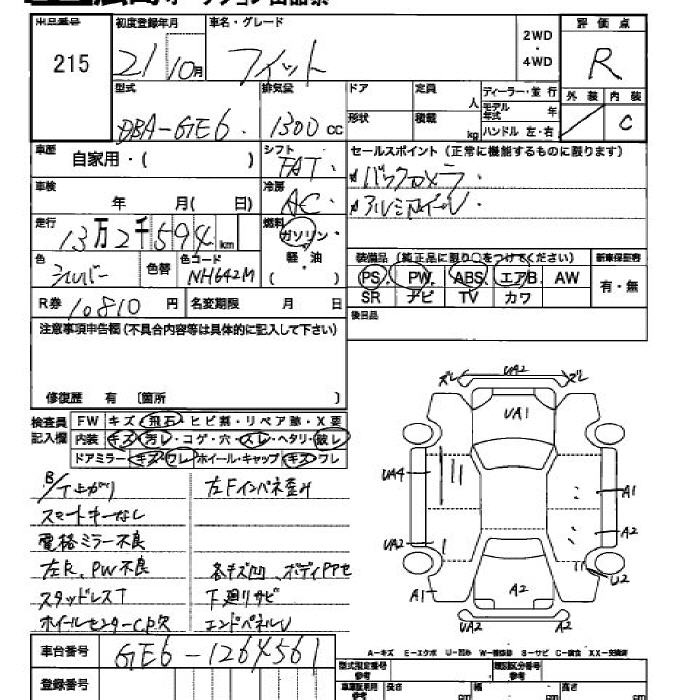 出品番号 初度登録年月 車名・グレード 2WD・4WD 評価点
215 21 10月 フィット R
外装 内装
C
型式 排気量 ドア 定員 人 ディーラー・並行
DBA-GE6 1300 CC 形状 積載 kg モデル年式 年
ハンドル 左・右
車歴 自家用・( ) シフト FAT セールスポイント(正常に機能するものに限ります)
バックカメラ
アルミホイール
車検 年 月( 日) 冷房 AC
走行 13万2千594km 燃料 ガソリン・軽・油 ( )
色 シルバー 色替 色コード NH642M
装備品(純正品に限り○をつけてください) 新車保証書
PS PW ABS エアB AW 有・無
SR ナビ TV カワ
R券 10810円 名変期限 月 日 後日品
注意事項申告欄(不具合内容等は具体的に記入して下さい)
修復歴 有 〔箇所 〕
検査員記入欄 FW キズ・飛石・ヒビ割・リペア跡・X要
内装 キズ・汚レ・コゲ・穴・スレ・ヘタリ・破レ
ドアミラー キズ・ワレ ホイール・キャップ キズ・ワレ
B/T上がり 左Fインパネ歪み
スマートキーなし
電格ミラー不良
左R、PW不良 各キズ凹、ボディPアセ
スタッドレスT 下廻りサビ
ホイールセンターCP欠 エンドパネルU
ズレ UA2 ズレ
UA1
UA4 A1
UA2 A2
A1 A2 U2
UA2 A2
A-キズ E-エクボ U-凹み W-補修跡 S-サビ C-腐食 XX-交換済
車台番号 GE6-1264561
型式指定番号 参考 類別区分番号 参考
登録番号 車庫証明用 参考 長さ cm 幅 cm 高さ cm